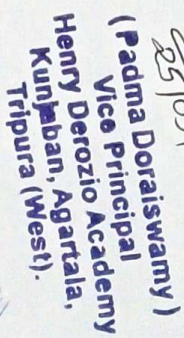 (Padma Doraiswamy)
Vice Principal
Henry Derozio Academy
Kunjaban, Agartala,
Tripura (West).